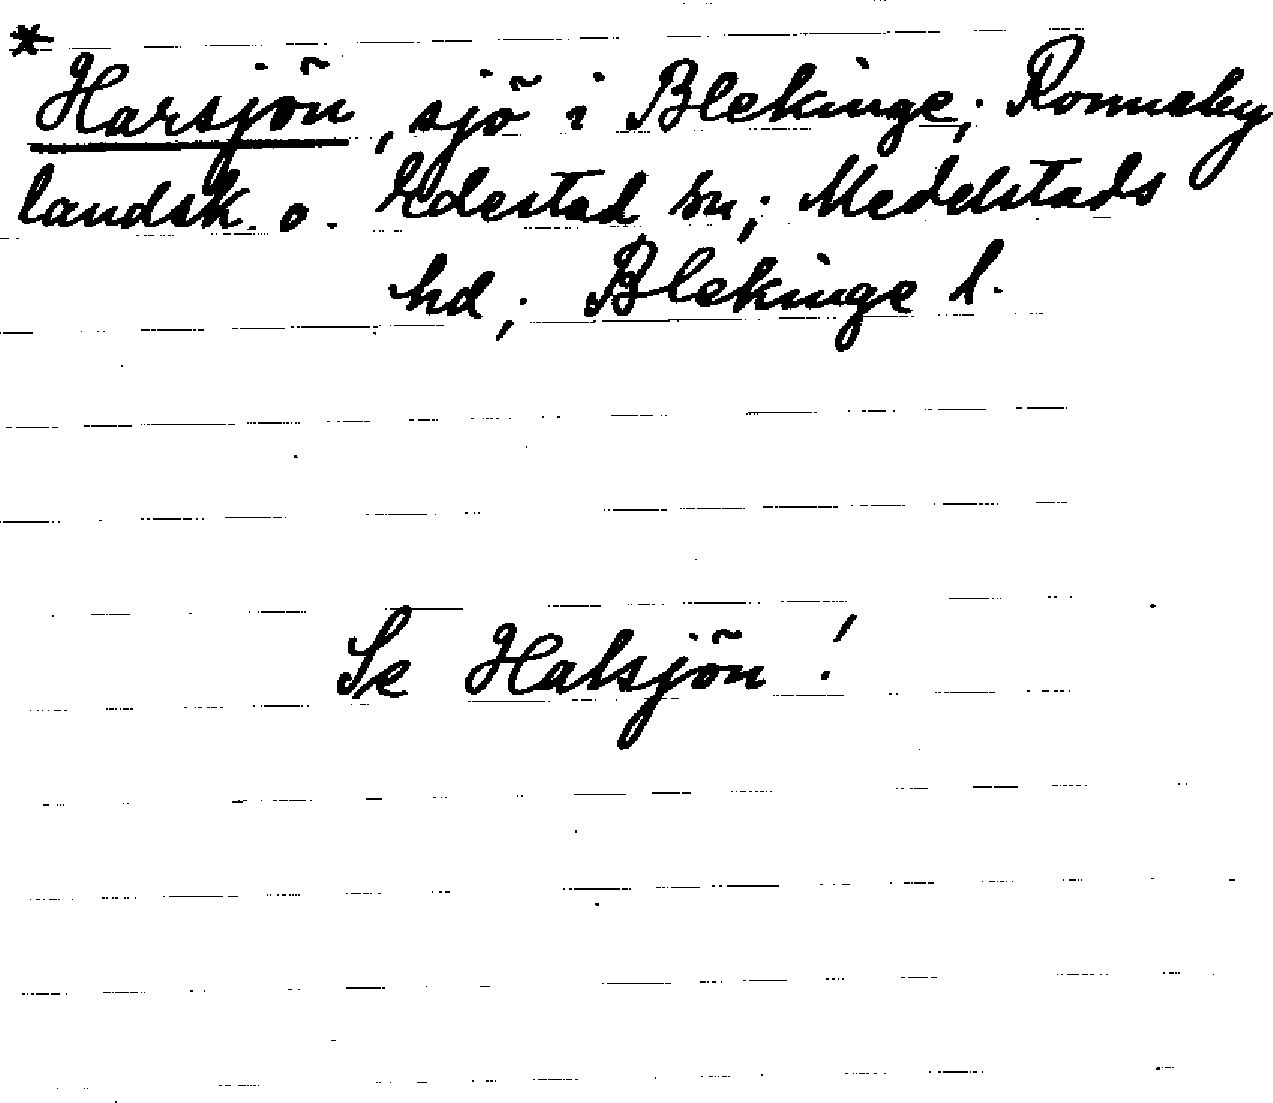 * Harsjön, sjö i Blekinge; Ronneby
landsk. o. Edestad sn; Medelstads
hd; Blekinge l.
Se Halsjön!